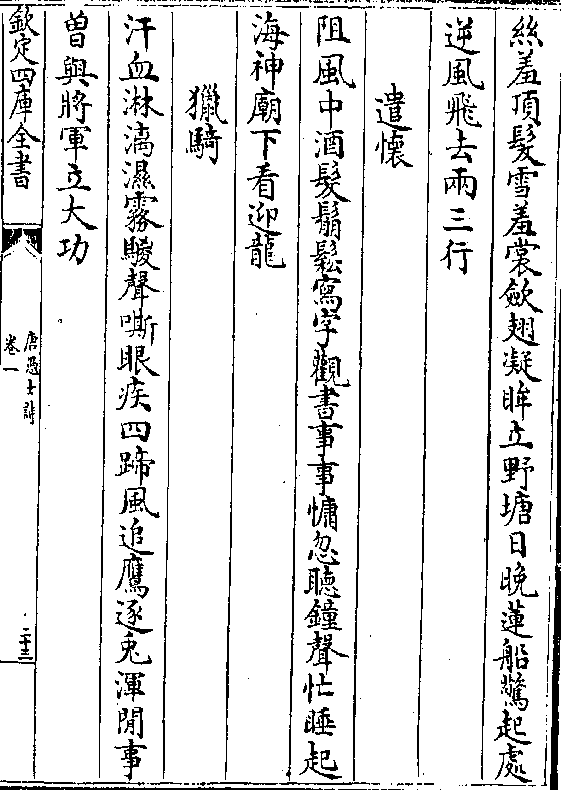 絲羞頂髮雪羞裳斂翅凝眸立野塘日晚蓮船驚起處
逆風飛去兩三行
遣懷
阻風中酒髮鬅鬆寫字觀書事事慵忽聽鐘聲忙睡起
海神廟下看迎龍
獵騎
汗血淋漓濕霧騣聲嘶眼疾四蹄風追鷹逐兎渾閒事
曽與將軍立大功
欽定四庫全書
唐愚士詩
卷一
二十三